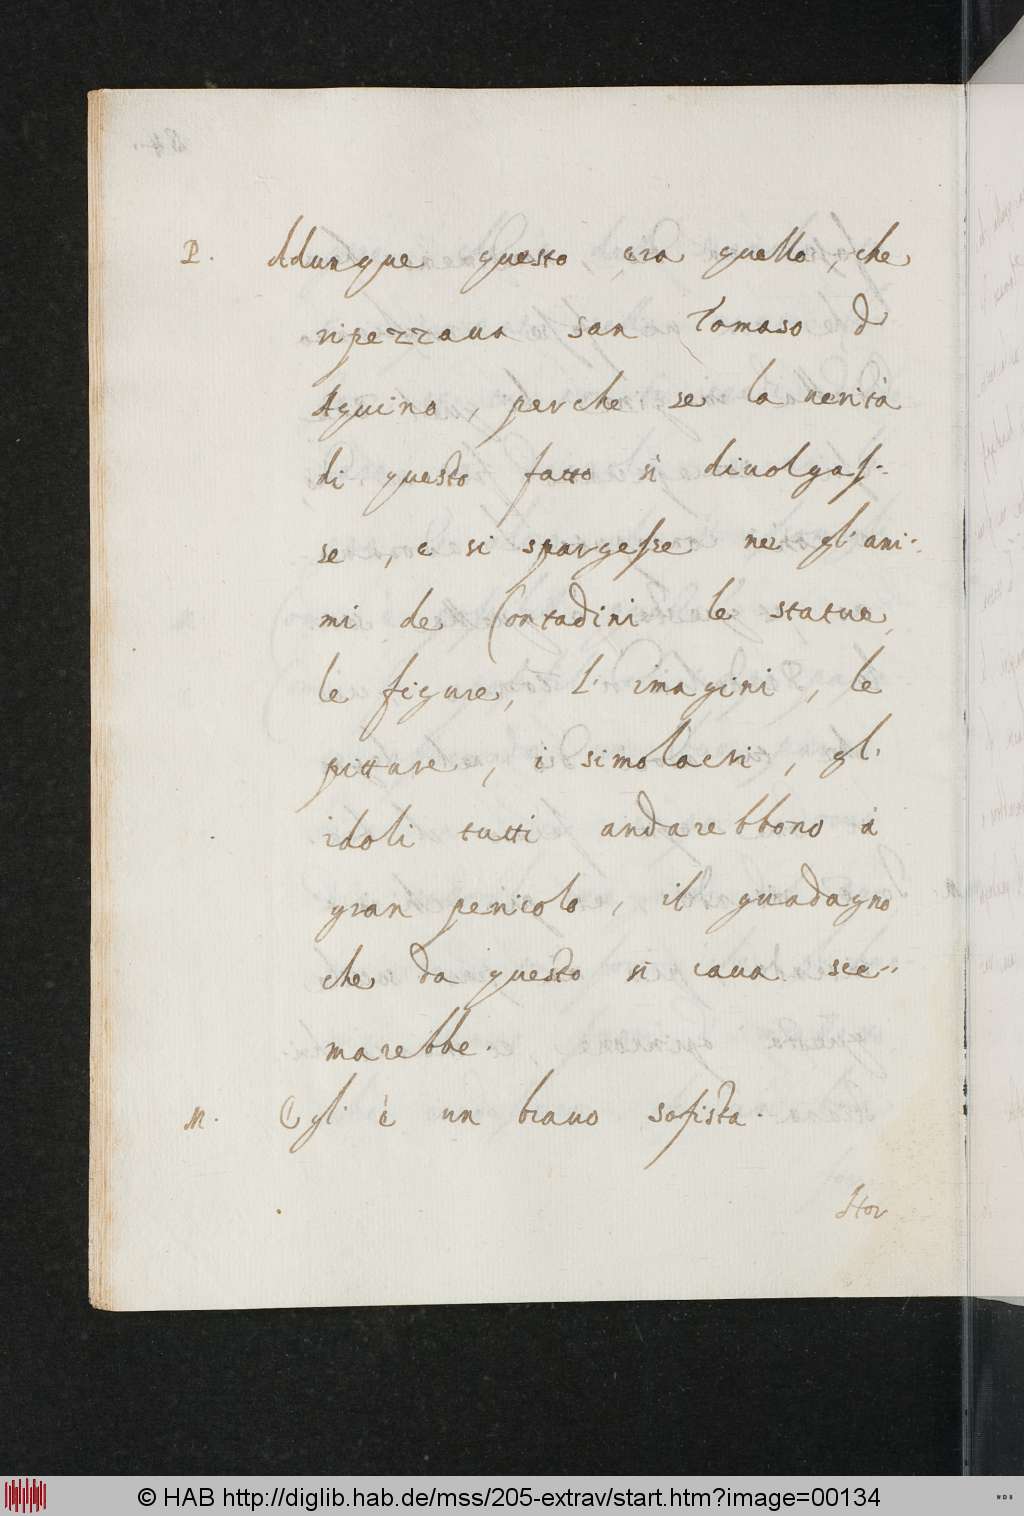 P. Adunque questo era quello, che
ripezzaua san Tomaso d
Aquino, perche se la uerità
di questo fatto si diuolgas-
se, e si spargesse ne gl' ani-
mi de Contadini le statue,
le figure, l' imagini, le
pitture, i simolacri, gl'
idoli tutti andarebbono à
gran pericolo, il guadagno
che da questo si caua sce-
marebbe.
M. Egl' è un brauo sofista.
Hor
© HAB http://diglib.hab.de/mss/205-extrav/start.htm?image=00134